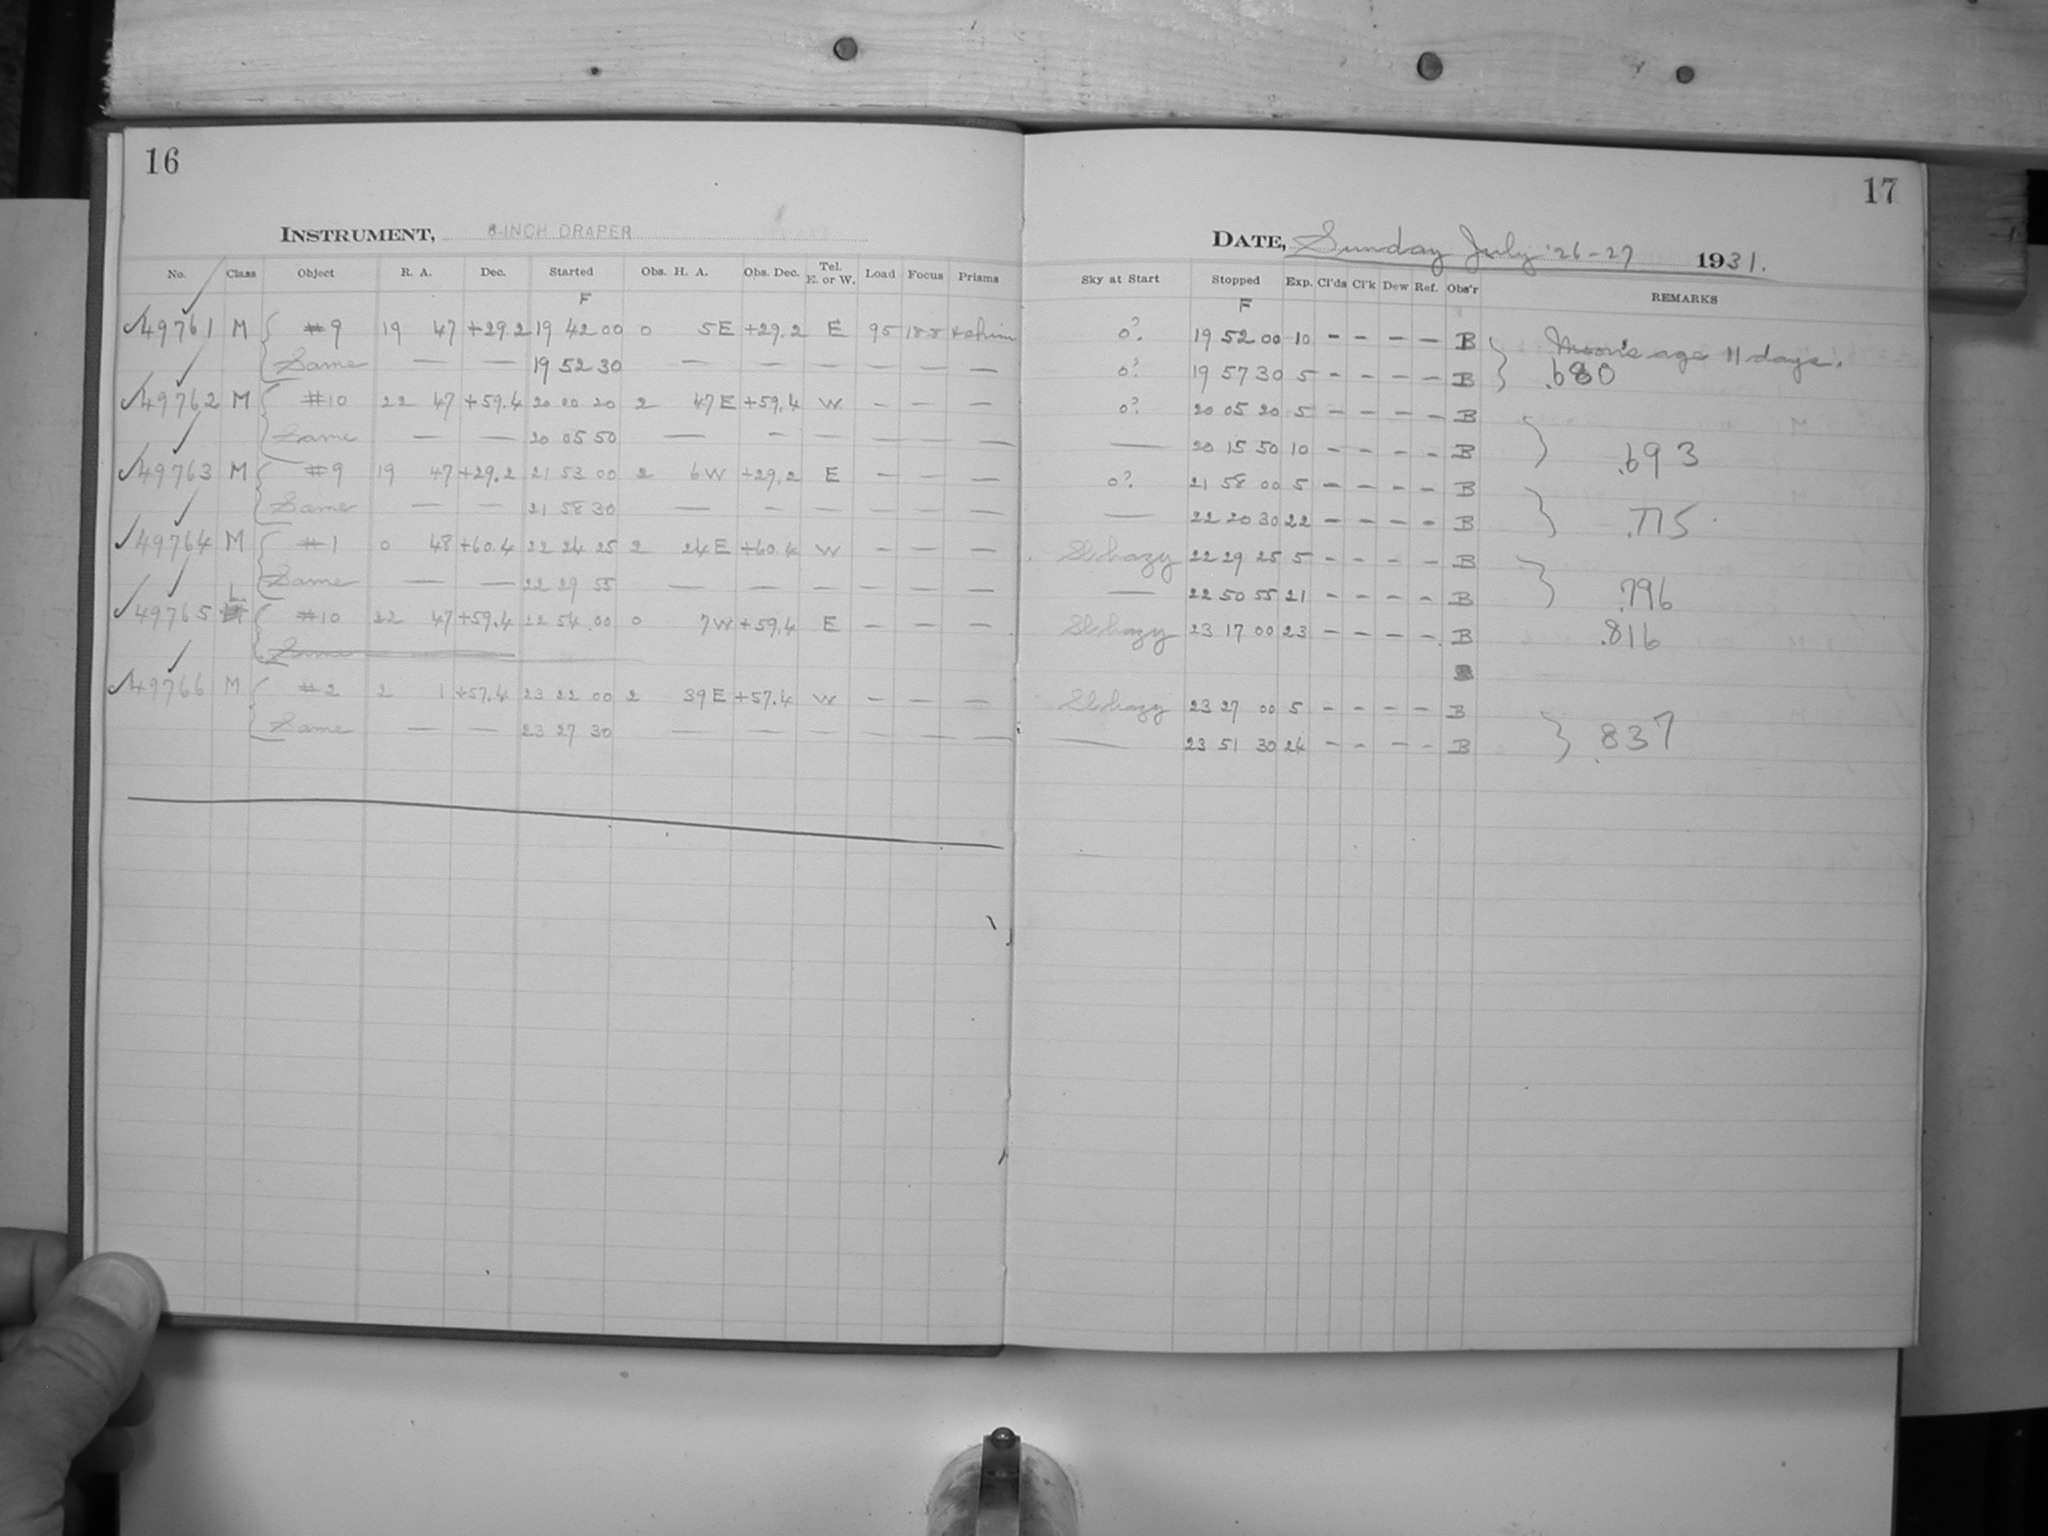 16
INSTRUMENT, 8-INCH DRAPER
No. Class Object R. A. Dec. Started Obs. H. A. Obs. Dec. Tel. E. or W. Load Focus Prisms
F
49761 M #9 19 47 +29.2 19 42 00 0 5E +29.2 E 95
Same — — 19 52 30 — — — — — —
49762 M #10 22 47 +59.4 20 00 20 2 47E +59.4 W — — —
Same — — 20 05 50 — — — — — —
49763 M #9 19 47 +29.2 21 53 00 2 6W +29.2 E — — —
Same — — 21 58 30 — — — — — —
49764 M #1 0 48 +60.4 22 24 25 2 24E +60.4 W — — —
Same — — 22 29 55 — — — — — —
49765 L #10 22 47 +59.4 22 54 00 0 7W +59.4 E — — —
Same
49766 M #2 2 1 +57.4 23 22 00 2 39E +57.4 W — — —
Same — — 23 27 30 — — — — — —
17
DATE, Sunday July 26-27 1931.
Sky at Start Stopped Exp. Cl'ds Cl'k Dew Ref. Obs'r REMARKS
F
0? 19 52 00 10 - - - - B Moon's age 11 days.
0? 19 57 30 5 - - - - B .680
0? 20 05 20 5 - - - - B
— 20 15 50 10 - - - - B .693
0? 21 58 00 5 - - - - B
— 22 20 30 22 - - - - B .775
Sl hazy 22 29 25 5 - - - - B
— 22 50 55 21 - - - - B .796
Sl hazy 23 17 00 23 - - - - B .816
Sl hazy 23 27 00 5 - - - - B
— 23 51 30 24 - - - - B .837